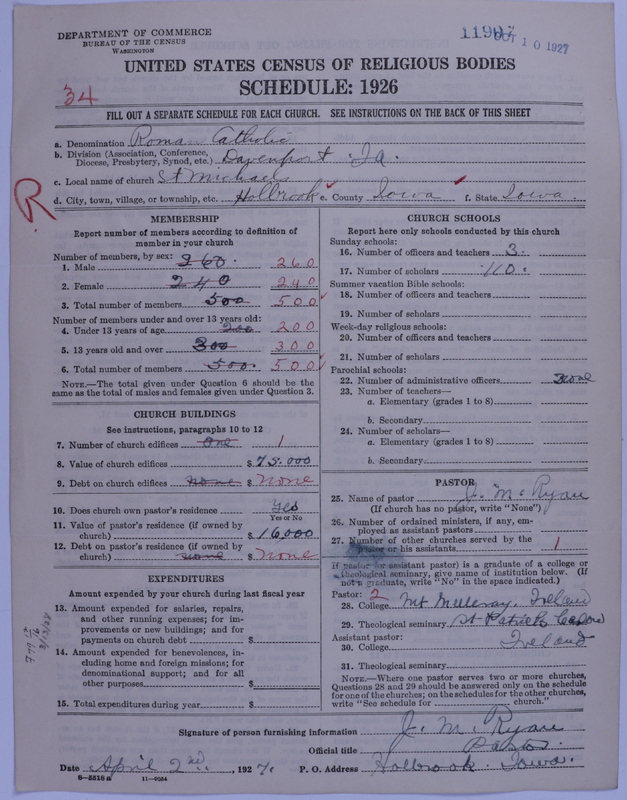 DEPARTMENT OF COMMERCE
BUREAU OF THE CENSUS
WASHINGTON
OCT 10 1927
UNITED STATES CENSUS OF RELIGIOUS BODIES
SCHEDULE: 1926
34
FILL OUT A SEPARATE SCHEDULE FOR EACH CHURCH. SEE INSTRUCTIONS ON THE BACK OF THIS SHEET
a. Denomination Roman Catholic
b. Division (Association, Conference, Diocese, Presbytery, Synod, etc.) Davenport Ia.
c. Local name of church St Michaels
d. City, town, village, or township, etc. Holbrook e. County Iowa f. State Iowa
R
MEMBERSHIP
Report number of members according to definition of
member in your church
Number of members, by sex:
1. Male 260. 260
2. Female 240 240
3. Total number of members 500 500
Number of members under and over 13 years old:
4. Under 13 years of age 200 200
5. 13 years old and over 300 300
6. Total number of members 500. 500
NOTE.—The total given under Question 6 should be
same as the total of males and females given under Question 3.
CHURCH BUILDINGS
See instructions, paragraphs 10 to 12
7. Number of church edifices One 1
8. Value of church edifices $ 75.000
9. Debt on church edifices none $ None
10. Does church own pastor's residence Yes
Yes or No
11. Value of pastor's residence (if owned by
church) $ 16,000
12. Debt on pastor's residence (if owned by
church) none $ None
EXPENDITURES
Amount expended by your church during last fiscal year
13. Amount expended for salaries, repairs,
and other running expenses; for im-
provements or new buildings; and for
payments on church debt $
14. Amount expended for benevolences, in-
cluding home and foreign missions; for
denominational support; and for all
other purposes $
15. Total expenditures during year $
CHURCH SCHOOLS
Report here only schools conducted by this church
Sunday schools:
16. Number of officers and teachers 3.
17. Number of scholars 110.
Summer vacation Bible schools:
18. Number of officers and teachers
19. Number of scholars
Week-day religious schools:
20. Number of officers and teachers
21. Number of scholars
Parochial schools:
22. Number of administrative officers none
23. Number of teachers—
a. Elementary (grades 1 to 8)
b. Secondary
24. Number of scholars—
a. Elementary (grades 1 to 8)
b. Secondary
PASTOR
25. Name of pastor J. M. Ryan
(If church has no pastor, write "None")
26. Number of ordained ministers, if any, em-
ployed as assistant pastors
27. Number of other churches served by the
pastor or his assistants 1
If pastor (or assistant pastor) is a graduate of a college or
theological seminary, give name of institution below. (If
not a graduate, write "No" in the space indicated.)
Pastor: 2
28. College Mt Melleray, Ireland
29. Theological seminary St Patricks Carlow
Assistant pastor: Ireland
30. College
31. Theological seminary
NOTE.—Where one pastor serves two or more churches,
Questions 28 and 29 should be answered only on the schedule
for one of the churches; on the schedules for the other churches,
write "See schedule for church."
Signature of person furnishing information J. M. Ryan
Official title Pastor.
Date April 2nd., 1927. P. O. Address Holbrook Iowa.
8—5518 a 11—9054